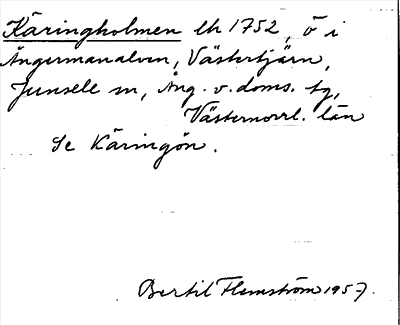 Käringholmen lh 1752, ö i
Ångermanälven, Västertjärn,
Junsele sn, Ång. v. doms. tg,
Västernorrl. län
Se Käringön.
Bertil Flemström 1957.